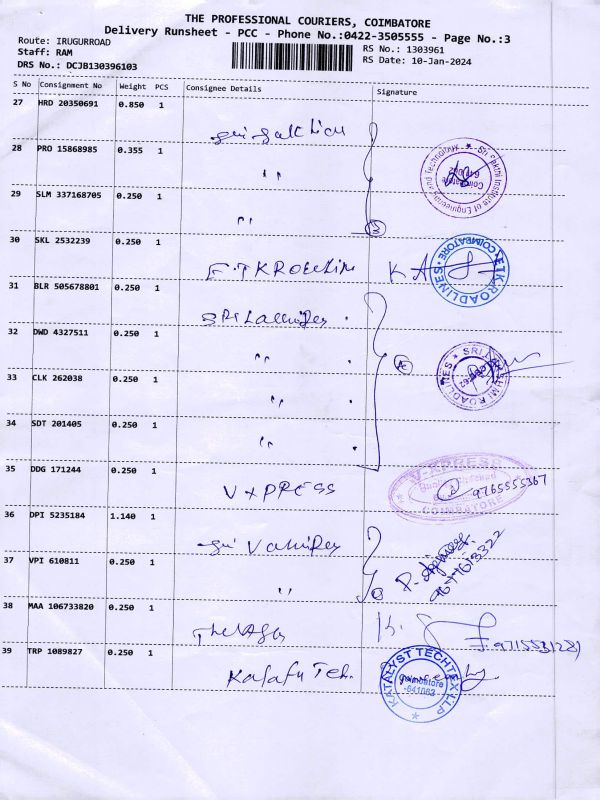 THE PROFESSIONAL COURIERS, COIMBATORE
Delivery Runsheet - PCC - Phone No.:0422-3505555 - Page No.:3
Route: IRUGURROAD
RS No.: 1303961
Staff: RAM
RS Date: 10-Jan-2024
DRS No.: DCJB130396103
S No Consignment No Weight PCS Consignee Details Signature
27 HRD 20350691 0.850 1
28 PRO 15868985 0.355 1
Sri Sakthi Institute of Engineering and Technology
Coimbatore
29 SLM 337168705 0.250 1
30 SKL 2532239 0.250 1
ETK ROADLINES COIMBATORE
31 BLR 505678801 0.250 1
32 DWD 4327511 0.250 1
SRI LAKSHMI ROADLINES
33 CLK 262038 0.250 1
34 SDT 201405 0.250 1
35 DDG 171244 0.250 1
VXPRESS
V-XPRESS
COIMBATORE
9765555367
36 DPI 5235184 1.140 1
37 VPI 610811 0.250 1
38 MAA 106733820 0.250 1
K.
39 TRP 1089827 0.250 1
KATALYST TECHTEX LLP
Coimbatore
-641062